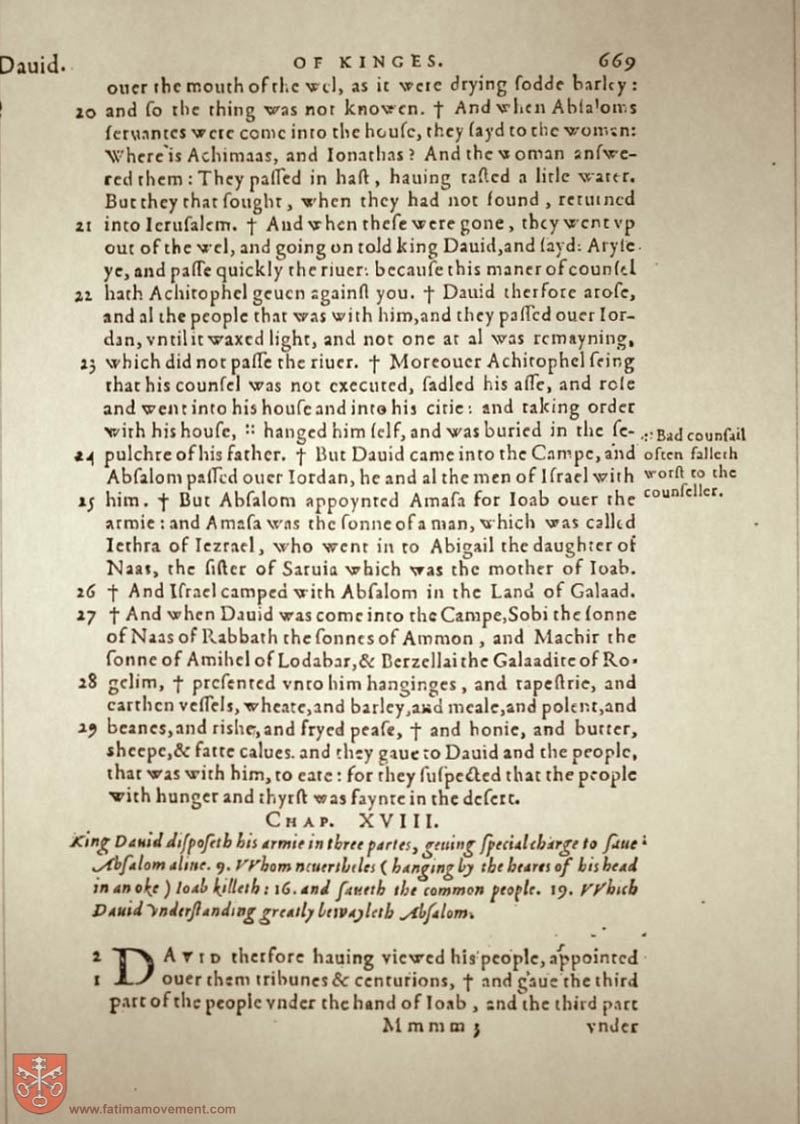 Dauid. OF KINGES. 669
ouer the mouth of the wel, as it were drying sodde barley:
20 and ſo the thing was not knowen. † And when Abſaloms
ſeruantes were come into the houſe, they ſayd to the woman:
Where is Achimaas, and Ionathas? And the woman anſwe-
red them: They paſſed in haſt, hauing taſted a litle water.
But they that ſought, when they had not found, returned
21 into Ieruſalem. † And when theſe were gone, they went vp
out of the wel, and going on told king Dauid, and ſayd: Aryſe
ye, and paſſe quickly the riuer: becauſe this maner of counſel
22 hath Achitophel geuen againſt you. † Dauid therfore aroſe,
and al the people that was with him, and they paſſed ouer Ior-
dan, vntil it waxed light, and not one at al was remayning,
23 which did not paſſe the riuer. † Moreouer Achitophel ſeing
that his counſel was not executed, ſadled his aſſe, and roſe
and went into his houſe and into his citie: and taking order
with his houſe, :: hanged him ſelf, and was buried in the ſe-
24 pulchre of his father. † But Dauid came into the Campe, and
Abſalom paſſed ouer Iordan, he and al the men of Iſrael with
25 him. † But Abſalom appoynted Amaſa for Ioab ouer the
armie: and Amaſa was the ſonne of a man, which was called
Iethra of Iezrael, who went in to Abigail the daughter of
Naas, the ſiſter of Saruia which was the mother of Ioab.
26 † And Iſrael camped with Abſalom in the Land of Galaad.
27 † And when Dauid was come into the Campe, Sobi the ſonne
of Naas of Rabbath the ſonnes of Ammon, and Machir the
ſonne of Amihel of Lodabar, & Berzellai the Galaadite of Ro-
28 gelim, † preſented vnto him hanginges, and tapeſtrie, and
earthen veſſels, wheate, and barley, and meale, and polent, and
29 beanes, and riſhe, and fryed peaſe, † and honie, and butter,
sheepe, & fatte calues. and they gaue to Dauid and the people,
that was with him, to eate: for they ſuſpected that the people
with hunger and thyrſt was faynte in the deſert.
:: Bad counſail
often falleth
worſt to the
counſeller.
CHAP. XVIII.
King Dauid diſpoſeth his armie in three partes, geuing ſpecial charge to ſaue
Abſalom aliue. 9. VVhom neuertheles (hanging by the heares of his head
in an oke) Ioab killeth: 16. and ſaueth the common people. 19. VVhich
Dauid vnderſtanding greatly bewayleth Abſalom.
2 DAVID therfore hauing viewed his people, appointed
1 ouer them tribunes & centurions, † and gaue the third
part of the people vnder the hand of Ioab, and the third part
Mmmm 3 vnder
www.fatimamovement.com